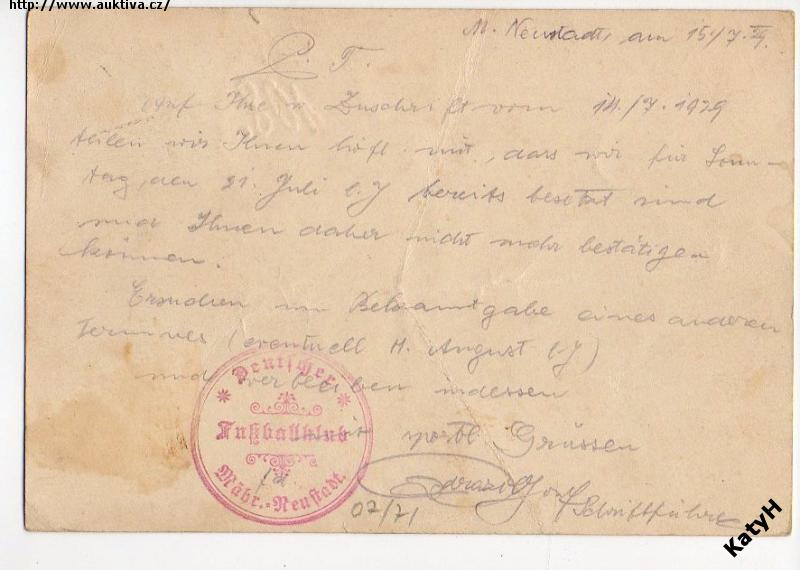 http://www.auktiva.cz/
M. Neustadt, am 15./7. 29.
P. T.
Auf Ihre Zuschrift vom 14./7. 1929
teilen wir Ihnen höfl. mit, dass wir für Sonn-
tag, den 21. Juli l. J bereits besetzt sind
und Ihnen daher nicht mehr bestätigen
können.
Ersuchen um Bekanntgabe eines anderen
Termines (eventuell 11. August l. J)
und verbleiben indessen
mit sportl Grüssen
Schriftführer
Deutscher
Fußballklub
Mähr.-Neustadt.
02/71
KatyH